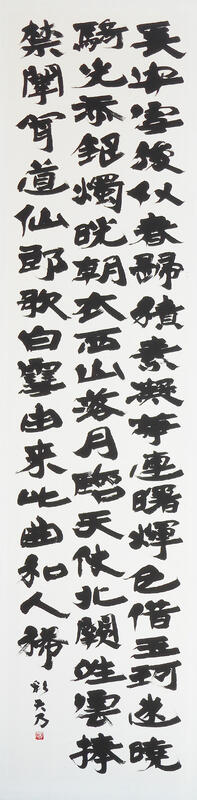 長安雪後似春歸積素凝華連曙輝色借玉珂迷曉
騎光添銀燭晄朝衣西山落月臨天仗北闕晴雲捧
禁闈聞道仙郎歌白雪由来此曲和人稀